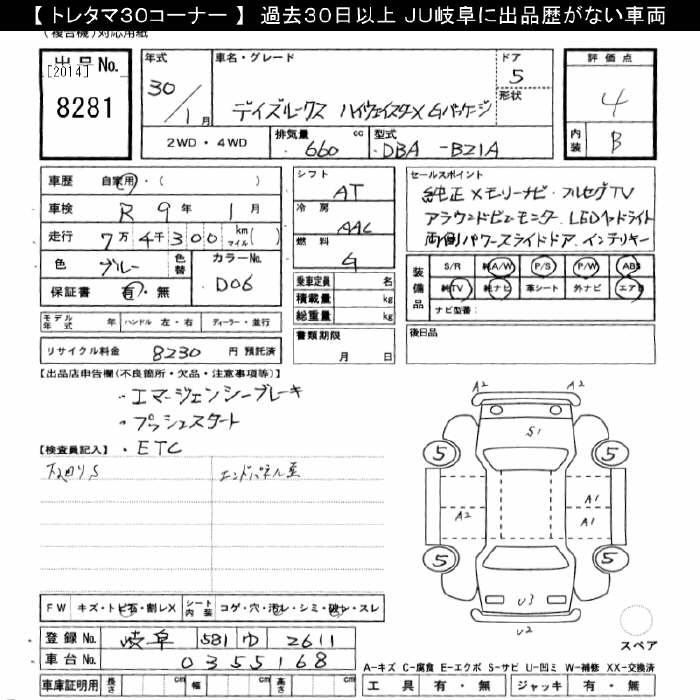 【 トレタマ30コーナー 】 過去30日以上 JU岐阜に出品歴がない車両
(複合機)対応用紙
出品No.
[2014]
8281
年式
30/1月
車名・グレード
デイズルークス ハイウェイスターX Gパッケージ
ドア
5
形状
評価点
4
内装
B
2WD・4WD
排気量
660
cc
型式
DBA -B21A
車歴 自家用・( )
車検 R 9年 1月
走行 7万4千300 km マイル( )
色 ブルー 色替
カラーNo.
D06
保証書 有・無
シフト
AT
冷房
AAC
燃料
G
乗車定員 名
積載量 kg
総重量 kg
書類期限
月 日
セールスポイント
純正メモリーナビ・フルセグTV
アラウンドビューモニター LEDヘッドライト
両側パワースライドドア インテリキー
装備品
S/R 純A/W P/S P/W ABS
純TV 純ナビ 革シート 外ナビ エアB
ナビ型番:
後日品
モデル年式 年 ハンドル 左・右 ディーラー・並行
リサイクル料金 8230 円 預託済
【出品店申告欄(不良箇所・欠品・注意事項等)】
・エマージェンシーブレーキ
・プッシュスタート
・ETC
【検査員記入】
下廻りS
エンドパネル歪
A2
A2
S1
5
5
A2
A1
A1
5
5
U3
U2
スペア
FW キズ・トビ石・割レX
シート内装 コゲ・穴・汚レ・シミ・破レ・スレ
登録No. 岐阜 581 ゆ 2611
車台No. 0355168
車庫証明用 長さ cm 幅 cm 高さ cm
A-キズ C-腐食 E-エクボ S-サビ U-凹ミ W-補修 XX-交換済
工具 有・無 ジャッキ 有・無